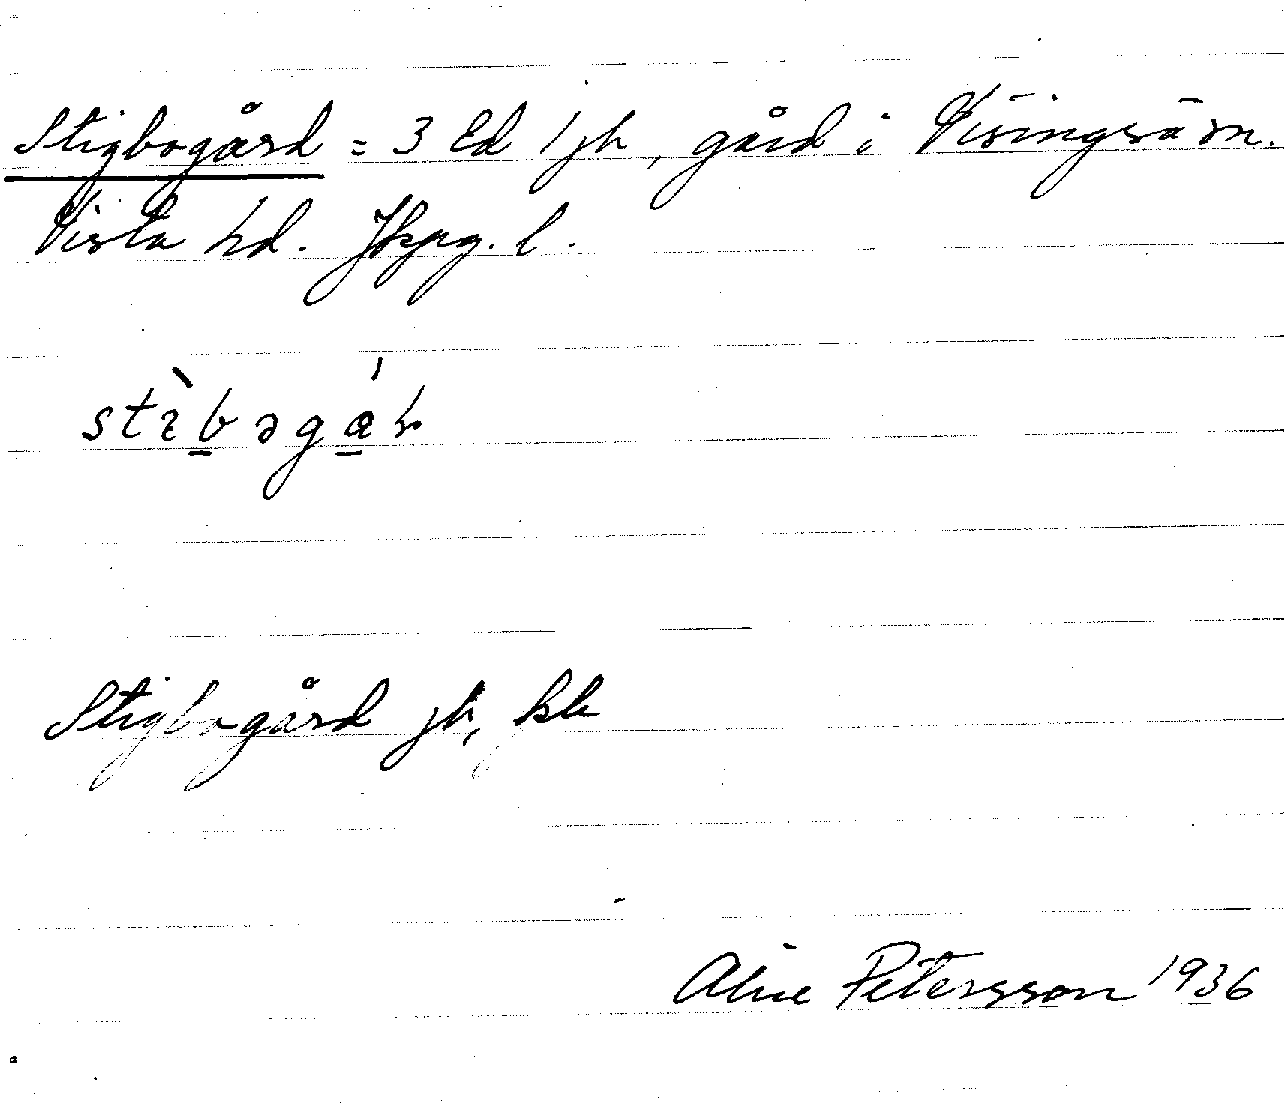 Stigbogård = 3 Ed 1 jh, gård i Visingsö sn.
Vista hd. Jkpg. l.
stìbəgáɽ
Stigbogård jh,
Petersson 1936